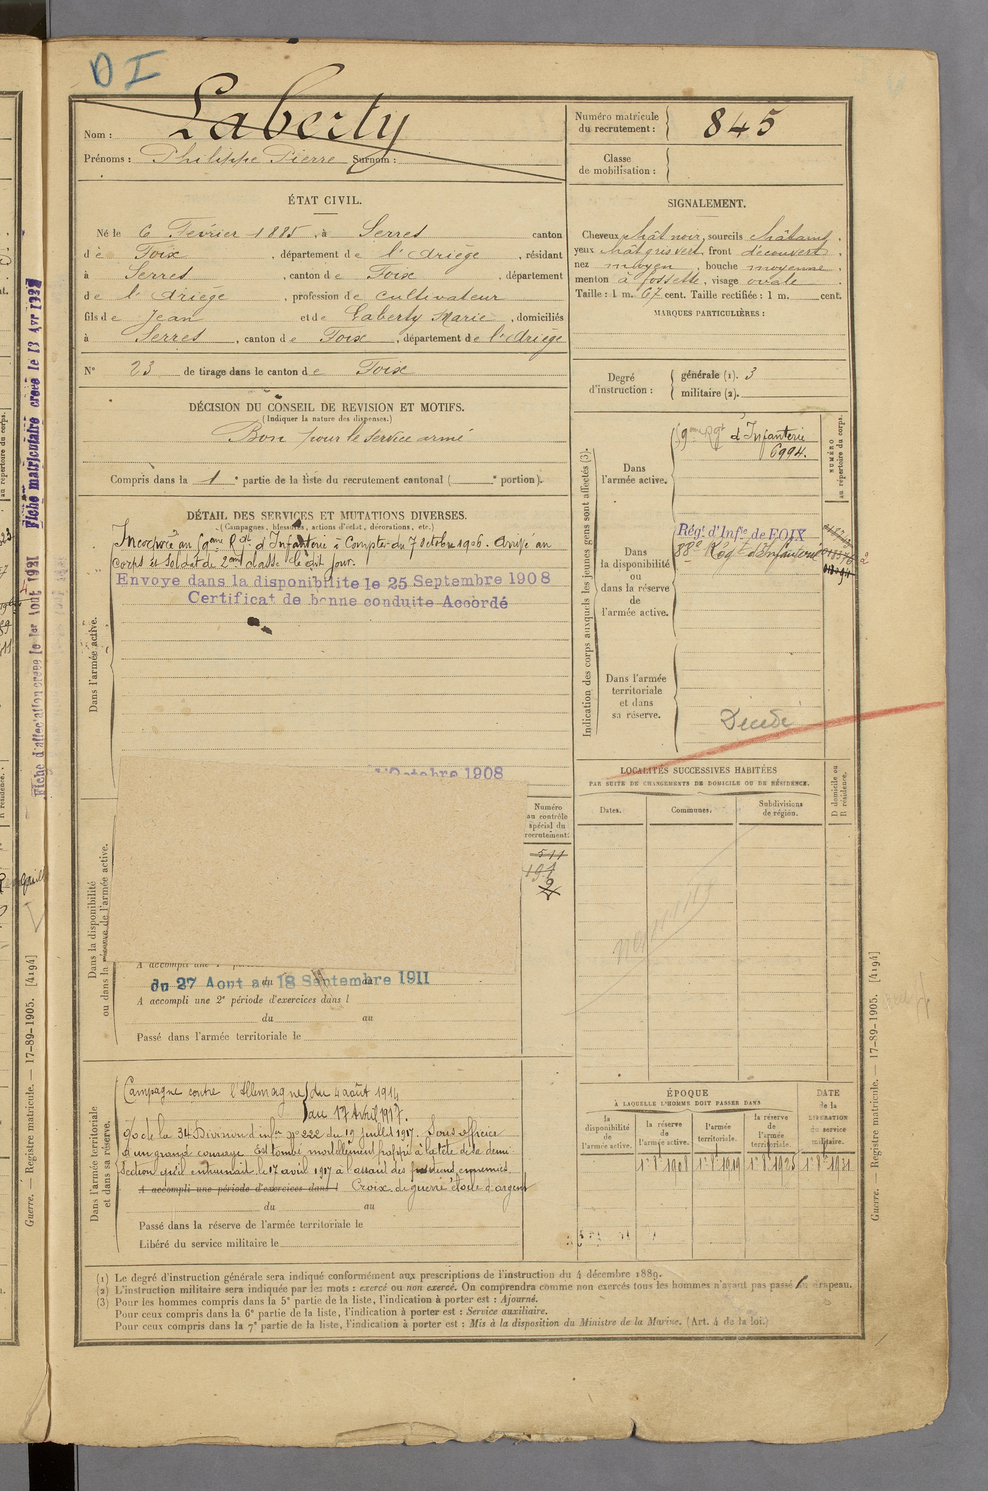 DI
Nom : Laberty
Prénoms : Philippe Pierre Surnom :
Numéro matricule du recrutement : 845
Classe de mobilisation :
ÉTAT CIVIL.
Né le 6 Février 1885, à Serres canton
de Foix, département de l'Ariège, résidant
à Serres, canton de Foix, département
de l'Ariège, profession de cultivateur
fils de Jean et de Laberty Marie, domiciliés
à Serres, canton de Foix, département de l'Ariège
N° 23 de tirage dans le canton de Foix
SIGNALEMENT.
Cheveux chât noir, sourcils châtains,
yeux chât gris vert, front découvert,
nez moyen, bouche moyenne,
menton à fossette, visage ovale.
Taille : 1 m. 67 cent. Taille rectifiée : 1 m. cent.
MARQUES PARTICULIÈRES :
Degré d'instruction : générale (1). 3
militaire (2).
DÉCISION DU CONSEIL DE REVISION ET MOTIFS.
(Indiquer la nature des dispenses.)
Bon pour le service armé
Compris dans la 1e partie de la liste du recrutement cantonal ( e portion).
DÉTAIL DES SERVICES ET MUTATIONS DIVERSES.
(Campagnes, blessures, actions d'éclat, décorations, etc.)
Dans l'armée active.
Incorporé au 59eme Rgt d'Infanterie à Compter du 7 octobre 1906. Arrivé au
corps et soldat de 2eme classe le dit jour.
Envoyé dans la disponibilité le 25 Septembre 1908
Certificat de bonne conduite Accordé
Octobre 1908
Dans la disponibilité ou dans la réserve de l'armée active.
Numéro au contrôle spécial du recrutement:
511
A accompli une
du 27 Aout au 18 Septembre 1911
A accompli une 2e période d'exercices dans l
du au
Passé dans l'armée territoriale le
Dans l'armée territoriale et dans sa réserve.
Campagne contre l'Allemagne du 4 août 1914
au 17 Avril 1917.
de la 34 Division d'infie n° 222 du 19 juillet 1917. Sous officier
d'un grand courage. Est tombé mortellement frappé à la tête de la demi
section qu'il entrainait le 17 avril 1917 à l'assaut des positions ennemies.
A accompli une période d'exercices dans l Croix de guerre étoile d'argent
du au
Passé dans la réserve de l'armée territoriale le
Libéré du service militaire le
Indication des corps auxquels les jeunes gens sont affectés (3).
NUMÉRO au répertoire du corps.
Dans l'armée active.
59eme Rgt d'Infanterie
6994.
Dans la disponibilité ou dans la réserve de l'armée active.
Rég. d'Infie de FOIX
88e Régt d'Infanterie
Dans l'armée territoriale et dans sa réserve.
Décédé
LOCALITÉS SUCCESSIVES HABITÉES
PAR SUITE DE CHANGEMENTS DE DOMICILE OU DE RÉSIDENCE.
Dates.
Communes.
Subdivisions de région.
D domicile ou R résidence.
ÉPOQUE
À LAQUELLE L'HOMME DOIT PASSER DANS
la disponibilité de l'armée active.
la réserve de l'armée active.
l'armée territoriale.
la réserve de l'armée territoriale.
DATE de la LIBÉRATION du service militaire.
1er 8e 1908
1er 8e 1919
1er 8e 1925
1er 8e 1931
(1) Le degré d'instruction générale sera indiqué conformément aux prescriptions de l'instruction du 4 décembre 1889.
(2) L'instruction militaire sera indiquée par les mots : exercé ou non exercé. On comprendra comme non exercés tous les hommes n'ayant pas passé sous les drapeau.
(3) Pour les hommes compris dans la 5e partie de la liste, l'indication à porter est : Ajourné.
Pour ceux compris dans la 6e partie de la liste, l'indication à porter est : Service auxiliaire.
Pour ceux compris dans la 7e partie de la liste, l'indication à porter est : Mis à la disposition du Ministre de la Marine. (Art. 4 de la loi.)
Guerre. — Registre matricule. — 17-89-1905. [4194]
Guerre. — Registre matricule. — 17-89-1905. [4194]
Fiche d'affectation créée le 1er Aout 1921 Fiche matriculaire créée le 13 Avr 1927